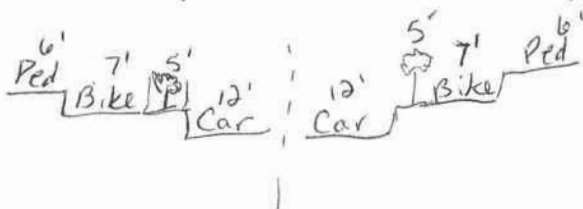 6'
Ped
7'
Bike
5'
12'
Car
12'
Car
5'
7'
Bike
6'
Ped